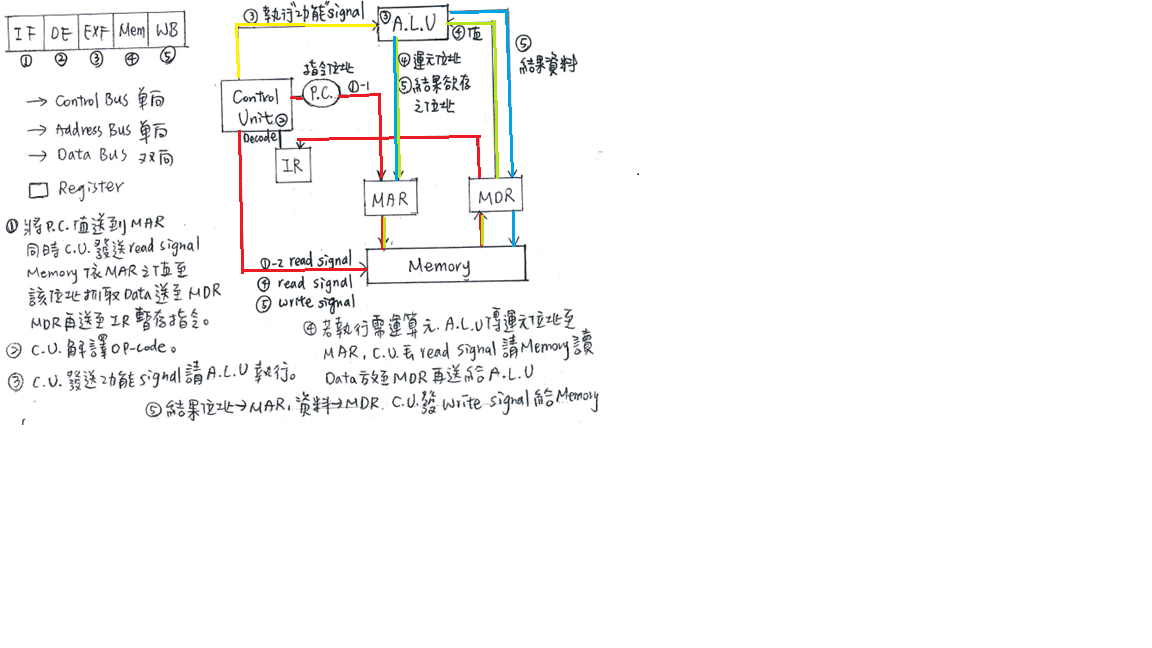 IF DE EXE Mem WB
① ② ③ ④ ⑤
→ Control Bus 单向
→ Address Bus 单向
→ Data Bus 双向
Register
③ 執行"功能"signal
③ A.L.U
④值
⑤
結果資料
④運元位址
⑤結果欲存
之位址
指令位址
P.C.
①-1
Control
Unit②
Decode
IR
MAR
MDR
Memory
①-2 read signal
④ read signal
⑤ write signal
① 將P.C.值送到MAR
同時C.U.發送read signal
Memory依MAR之值至
該位址抓取Data送至MDR
MDR再送至IR暫存指令。
② C.U.解譯OP-code。
③ C.U.發送功能signal請A.L.U執行。
④若執行需運算元.A.L.U傳運元位址至
MAR,C.U.丟read signal請Memory讀
Data放至MDR再送給A.L.U
⑤結果位址→MAR,資料→MDR.C.U.發write signal給Memory